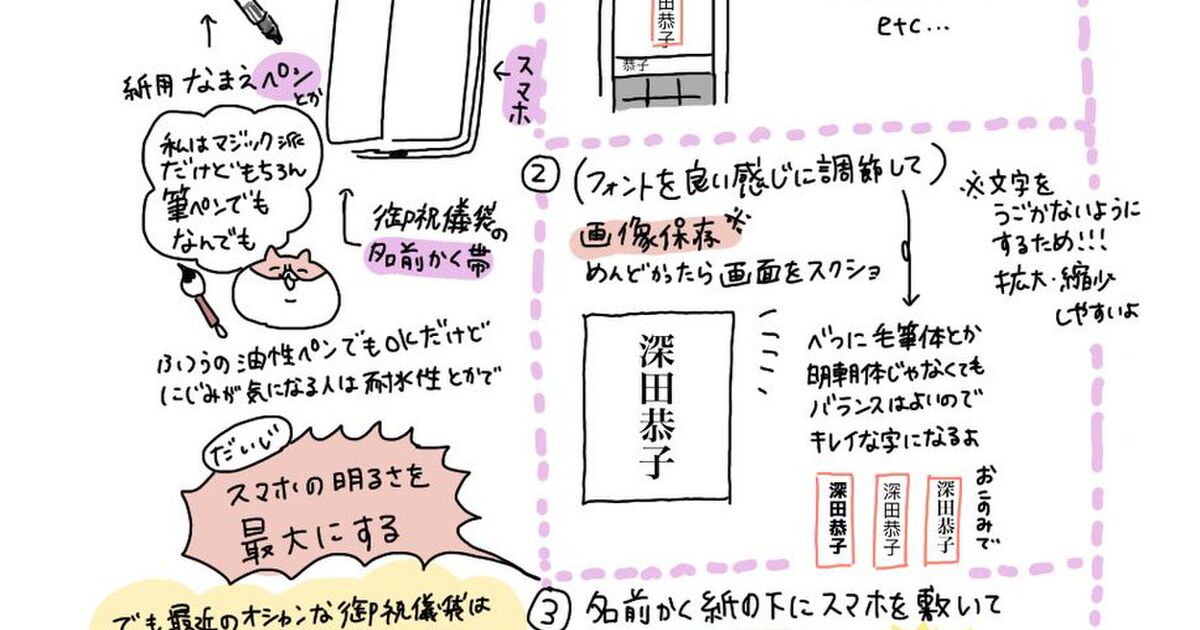 紙用なまえペン
とか
私はマジック派
だけどもちろん
筆ペンでも
なんでも
スマホ
御祝儀袋の
名前かく帯
ふつうの油性ペンでもOKだけど
にじみが気になる人は耐水性とかで
だいじ
スマホの明るさを
最大にする
でも最近のオシャンな御祝儀袋は
田恭子
恭子
etc...
②(フォントを良い感じに調節して)
画像保存※
めんどかったら画面をスクショ
※文字を
うごかないように
するため!!!
拡大・縮小
しやすいよ
深田恭子
べつに毛筆体とか
明朝体じゃなくても
バランスはよいので
キレイな字になるよ
深田恭子
深田恭子
深田恭子
おこのみで
③名前かく紙の下にスマホを敷いて